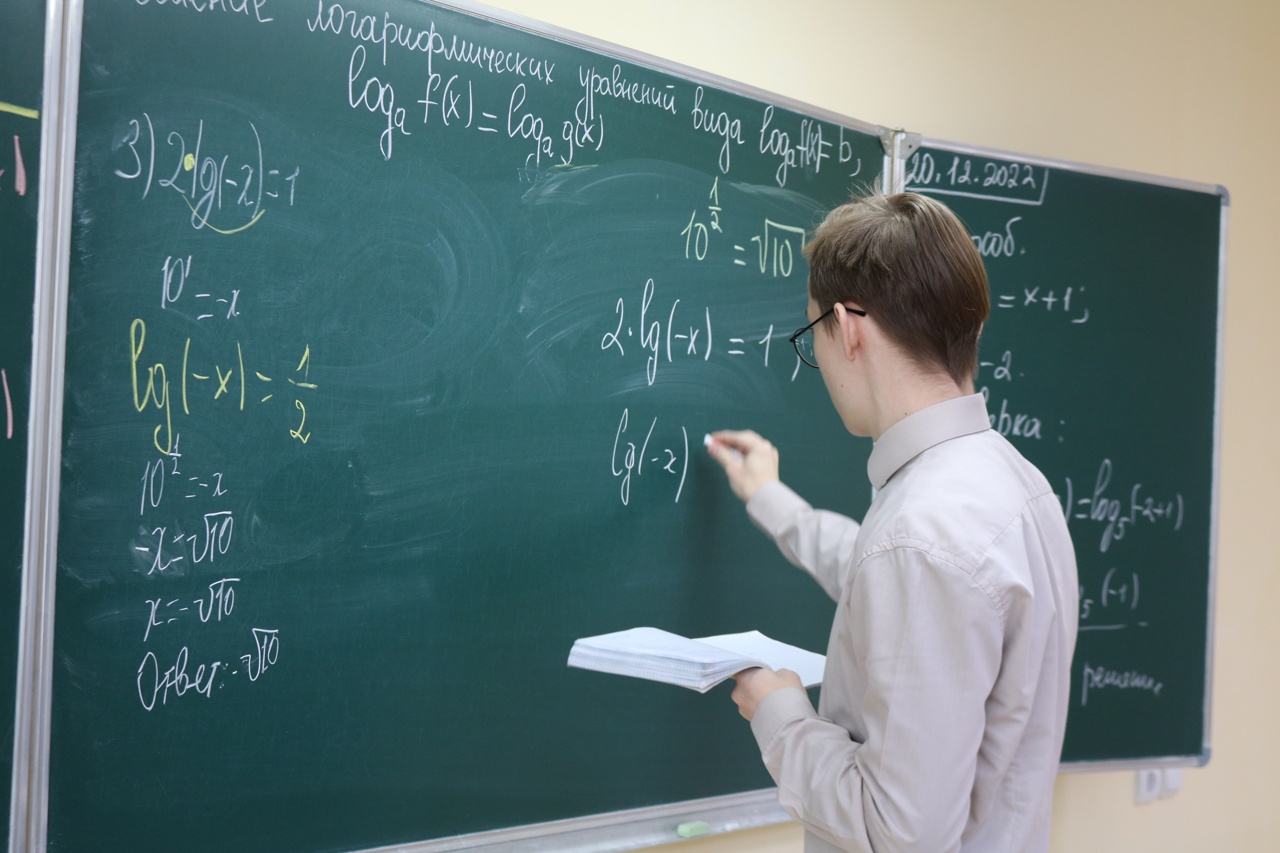 логарифмических уравнений вида logₐf(x)=b,
logₐ f(x) = logₐ g(x)
3) 2·lg(-x)=1
10¹ = -x
lg(-x) = 1/2
10^(1/2) = -x
-x=√10
x=-√10
Ответ: -√10
10^(1/2) = √10
2·lg(-x) = 1,
lg(-x)
20.12.2022
соб.
= x+1;
-2.
ерка:
)=log₅(-2+1)
₅(-1)